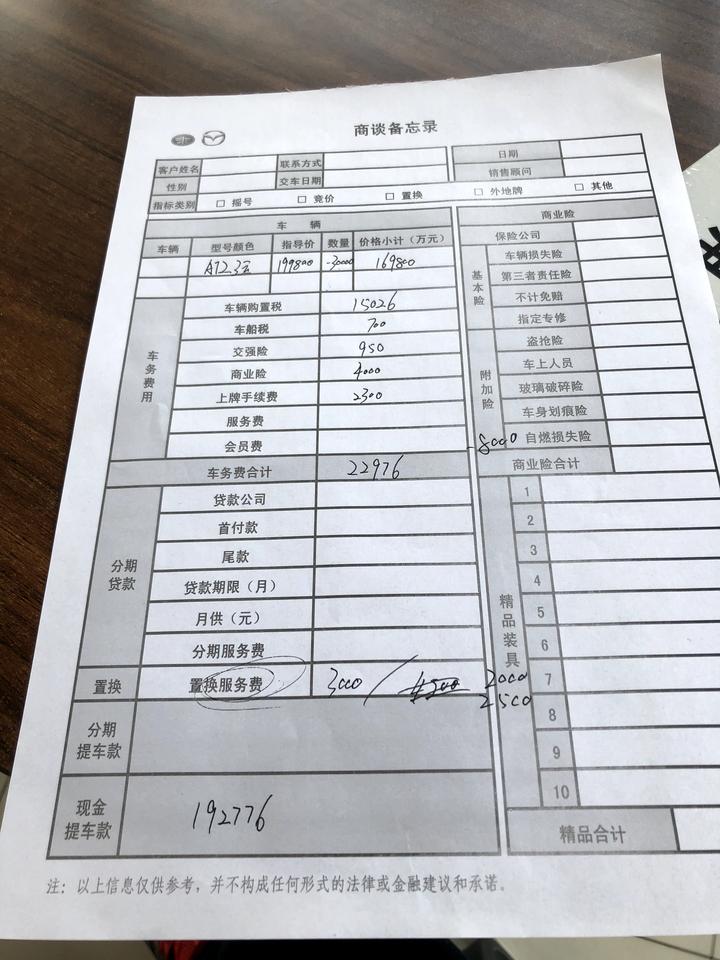 商谈备忘录
客户姓名 联系方式 日期
性别 交车日期 销售顾问
指标类别 □ 摇号 □ 竞价 □ 置换 □ 外地牌 □ 其他
车 辆
车辆 型号颜色 指导价 数量 价格小计（万元）
199800 -30000 169800
车务费用
车辆购置税 15026
车船税 700
交强险 950
商业险 4000
上牌手续费 2300
服务费
会员费
车务费合计 22976
分期贷款
贷款公司
首付款
尾款
贷款期限（月）
月供（元）
分期服务费
置换 置换服务费 3000 / 4500 2000
2500
分期提车款
现金提车款 192776
商业险
保险公司
基本险
车辆损失险
第三者责任险
不计免赔
指定专修
附加险
盗抢险
车上人员
玻璃破碎险
车身划痕险
-8000 自燃损失险
商业险合计
精品装具
1
2
3
4
5
6
7
8
9
10
精品合计
注：以上信息仅供参考，并不构成任何形式的法律或金融建议和承诺。